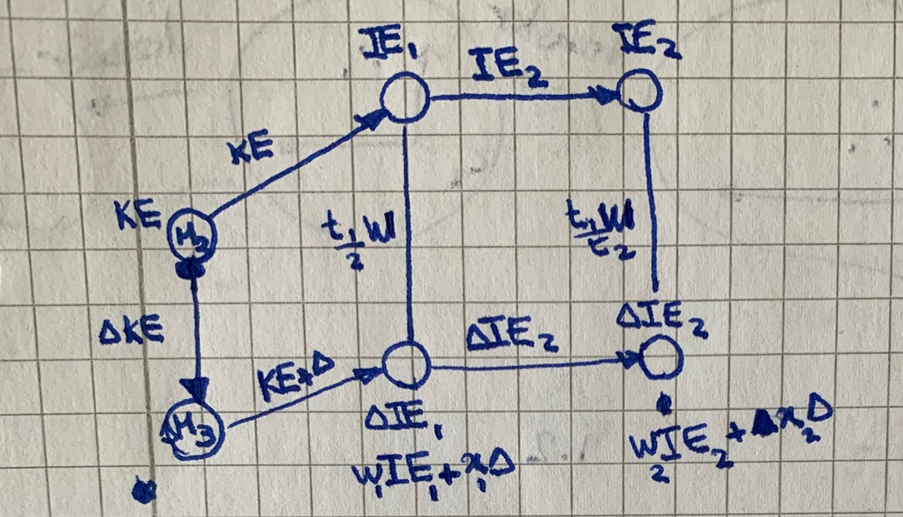 IE₁
IE₂
IE₂
KE
KE
M₃
t₁/2 W
t₁W/t₂
ΔKE
ΔIE₂
ΔIE₂
KE+Δ
M₃
ΔIE₁
W₁IE₁+x₁Δ
W₂IE₂+x₂Δ